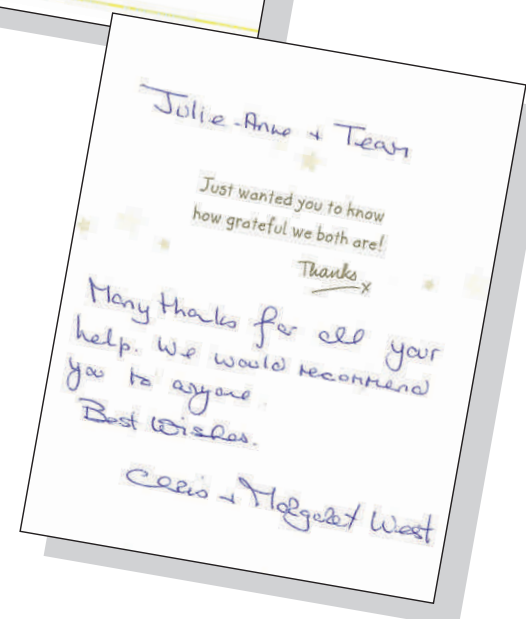 Julie-Anne + Team
Just wanted you to know
how grateful we both are!
Thanks x
Many thanks for all your
help. We would recommend
you to anyone.
Best Wishes.
Chris + Margaret West